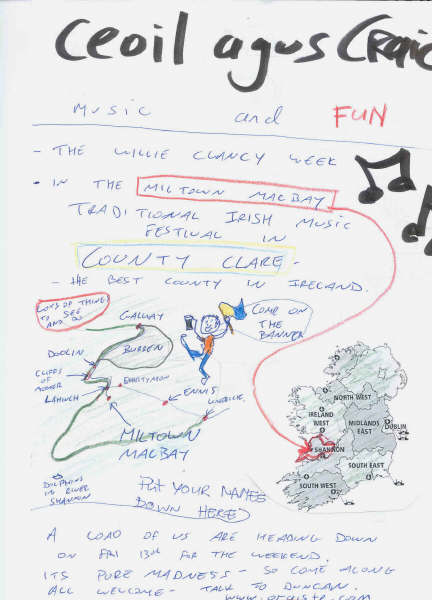 Ceoil agus Craic
MUSIC and FUN
- THE WILLIE CLANCY WEEK
- IN THE MILTOWN MACBAY
TRADITIONAL IRISH MUSIC
FESTIVAL IN
COUNTY CLARE -
- THE BEST COUNTY IN IRELAND.
LOTS OF THINGS
TO SEE
AND DO
GALWAY
COME ON
THE
BANNER
DOOLIN
BURREN
CLIFFS
OF
MOHER
ENNISTYMON
LAHINCH
ENNIS
LIMERICK
MILTOWN
MACBAY
NORTH WEST
IRELAND
WEST
MIDLANDS
EAST
DUBLIN
SHANNON
SOUTH EAST
SOUTH WEST
DOLPHINS
IN RIVER
SHANNON
PUT YOUR NAMES
DOWN HERE
A LOAD OF US ARE HEADING DOWN
ON FRI 13th FOR THE WEEKEND.
ITS PURE MADNESS - SO COME ALONG
ALL WELCOME - TALK TO DUNCAN.